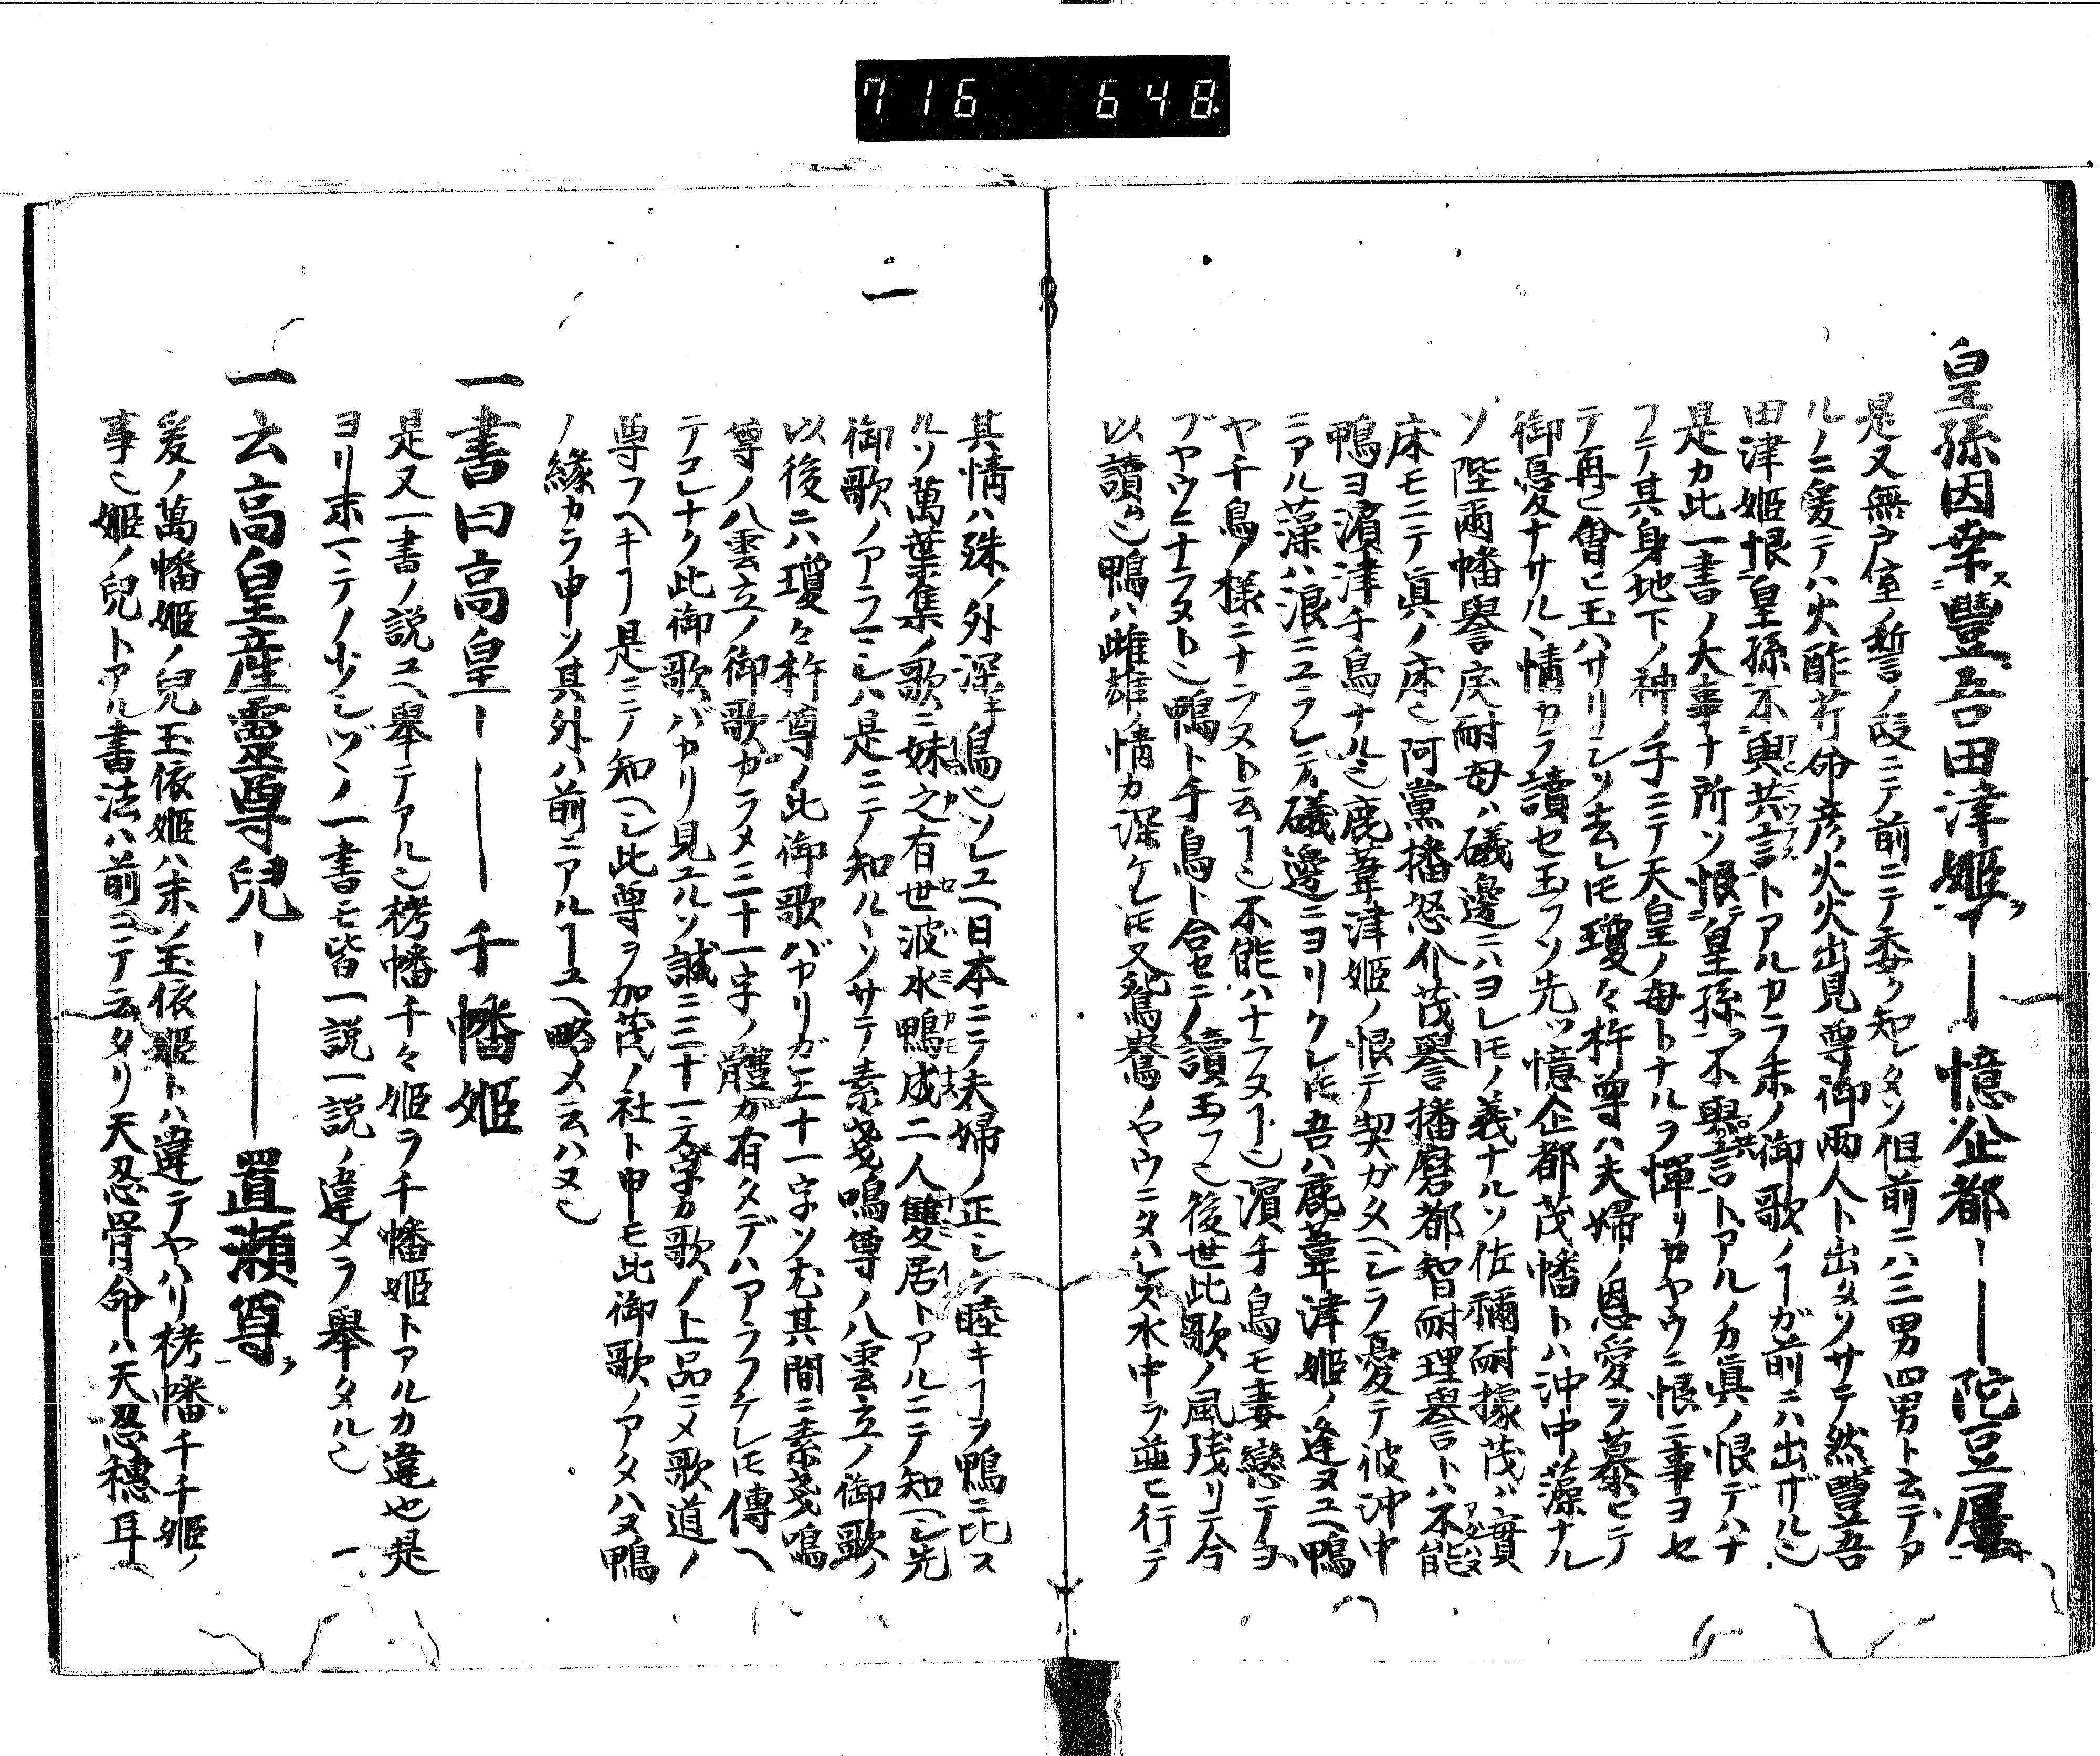 716 648
皇孫因幸豐吾田津姫ーー憶企都ーー陀豆屢
是又無戸室ノ誓ノ段ニテ前ニテ委ク知レタソ但前ニハ三男四男ト云テア
ルノニ爰テハ火酢芹命彦火火出見尊御兩人ト出タソサテ然豐吾
田津姫恨皇孫不與共言トアルカラ末ノ御歌ノヿガ前ニハ出ザル也
是カ此一書ノ大事ナ所ソ恨皇孫不與共言トアルノカ眞ノ恨デハナ
フテ其身地下ノ神ノ子ニテ天皇ノ母トナルヲ憚リカヤウニ恨ニ事ヨセ
テ再ヒ會ヒ玉ハサリシソ去レ𪜈瓊々杵尊ハ夫婦ノ恩愛ヲ慕ヒテ
御憂ナサルヽ情カラ讀セ玉フソ先ツ憶企都茂幡トハ沖中藻ナル
ソ陛爾幡譽戻耐母ハ礒邊ニハヨレ𪜈ノ義ナルソ佐禰耐據茂ハ實
床モニテ眞ノ床也阿黨播怒介茂譽播磨都智耐理譽トハ不能
鴨ヨ濵津千鳥ナル也鹿葦津姫ノ恨テ契ガタヘシヲ憂テ彼沖中
ニアル藻ハ浪ニユラレテ礒邊ニヨリクレ𪜈吾ハ鹿葦津姫ノ逢ヌユヘ鴨
ヤ千鳥ノ樣ニナラヌト云ヿ也不能ハナラヌヿ也濵千鳥モ妻戀テヨ
ブヤウニナラヌト也鴨ト千鳥ト合セニノ讀玉フ也後世此歌ノ風残リテ今
以讀ム也鴨ハ雌雄ノ情カ深ケレ𪜈又鴛鴦ノヤウニタハレズ水中ヲ並ヒ行テ
一
其情ハ殊ノ外深キ鳥也ソレユヘ日本ニテ夫婦ノ正シク睦キヿヲ鴨ニ比ス
ルソ萬葉集ノ歌ニ妹之有世波水鴨成二人雙居トアルニテ知ヘシ先
御歌ノアラユミシハ是ニテ知ルヽソサテ素戔嗚尊ノ八雲立ノ御歌ノ
以後ニハ瓊々杵尊ノ此御歌バカリガ三十一字ソ尤其間ニ素戔嗚
尊ノ八雲立ノ御歌カラメ三十一字ノ體カ有タデハアラフケレ𪜈傳ヘ
テコレナク此御歌バカリ見ユルソ誠ニ三十一文字カ歌ノ上品ニメ歌道ノ
尊フヘキヿ是ニテ知ヘシ此尊ヲ加茂ノ社ト申モ此御歌ノアタハヌ鴨
ノ縁カラ申ソ其外ハ前ニアルヿユヘ略メ云ハヌ也
一書曰高皇ーー千幡姫
是又一書ノ説ユヘ舉テアル也栲幡千々姫ヲ千幡姫トアルカ違也是
ヨリ末一ニテノ少シヅヽノ一書モ皆一説一説ノ違メヲ舉タル也
一云高皇産靈尊兒ーー置瀬尊
爰ノ萬幡姫ノ兒玉依姫ハ末ノ玉依姫トハ違テヤハリ栲幡千千姫ノ
事也姫ノ兒トアル書法ハ前ニテ云タリ天忍骨命ハ天忍穗耳